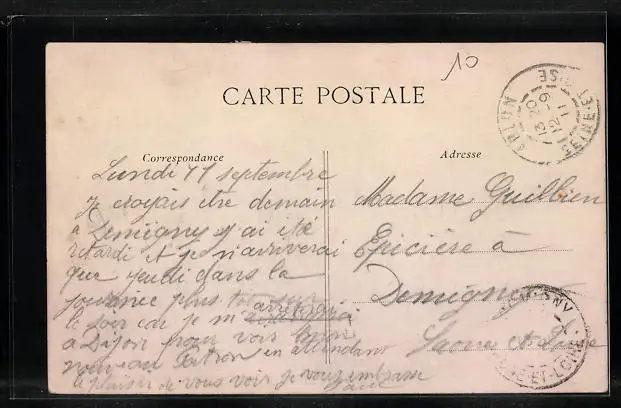 10
CARTE POSTALE
ABLON
SEINE-ET-OISE
13 20
12 -9
11
Correspondance
Adresse
Lundi 11 septembre
Je croyais etre demain
a Demigny j'ai été
retardi et je n'arriverai
que jeudi dans la
journée plus tot sur
le soir car je m'arreterai
a Dijon pour voir
nouveau Patron en attendant
le plaisir de vous voir je vous embrasse
Madame Guillien
Epicière à
Demigny
Saone et Loire
DEMIGNY
SAONE-ET-LOIRE